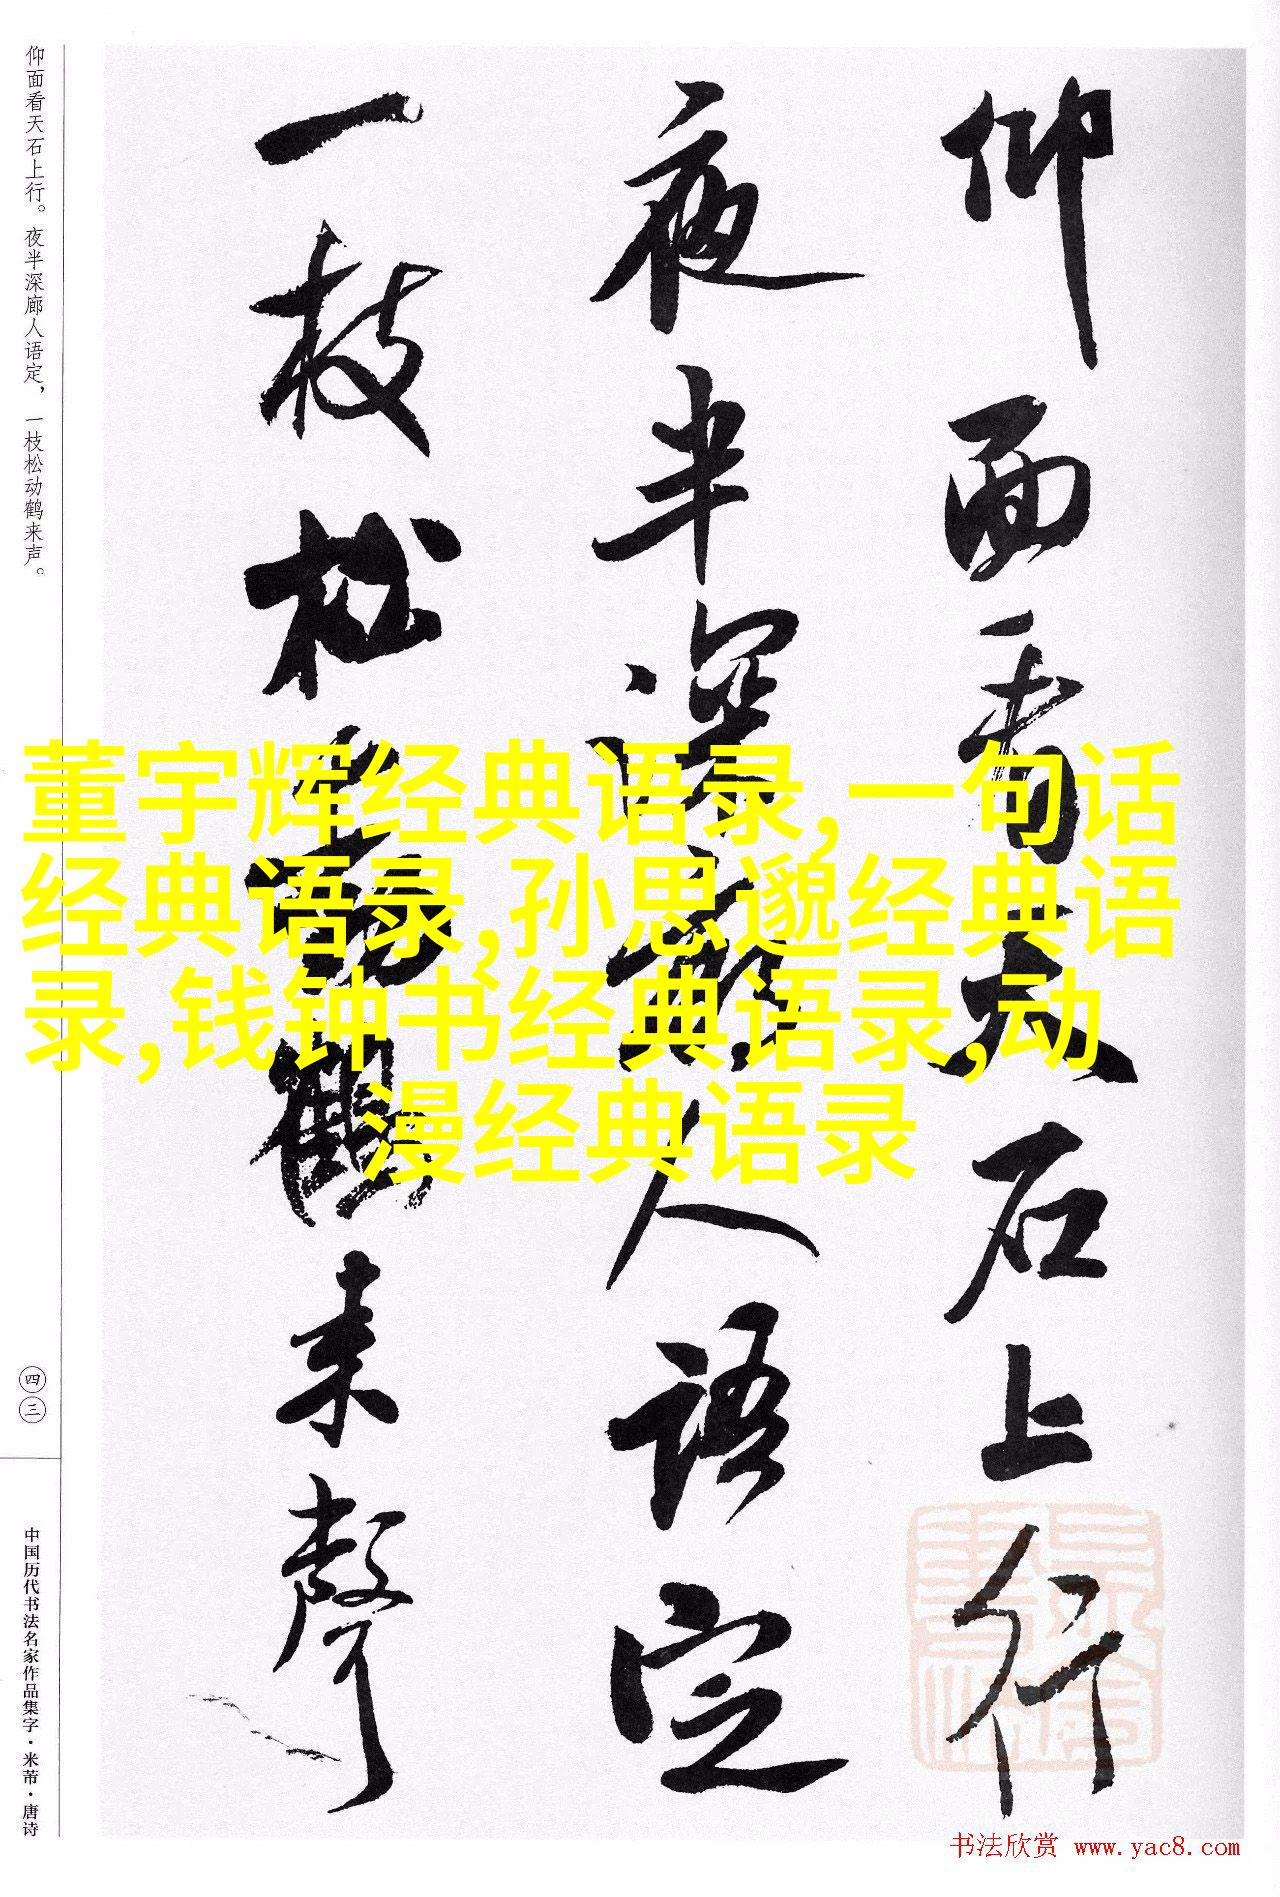 仰面看天石上行
夜半深廊人语定
一枝松动鹤来声
仰面看天石上行。夜半深廊人语定，一枝松动鹤来声。
四三
中国历代书法名家作品集字·米芾·唐诗
董宇辉经典语录,一句话
经典语录,孙思邈经典语
录,钱钟书经典语录,动
漫经典语录
书法欣赏 www.yac8.com